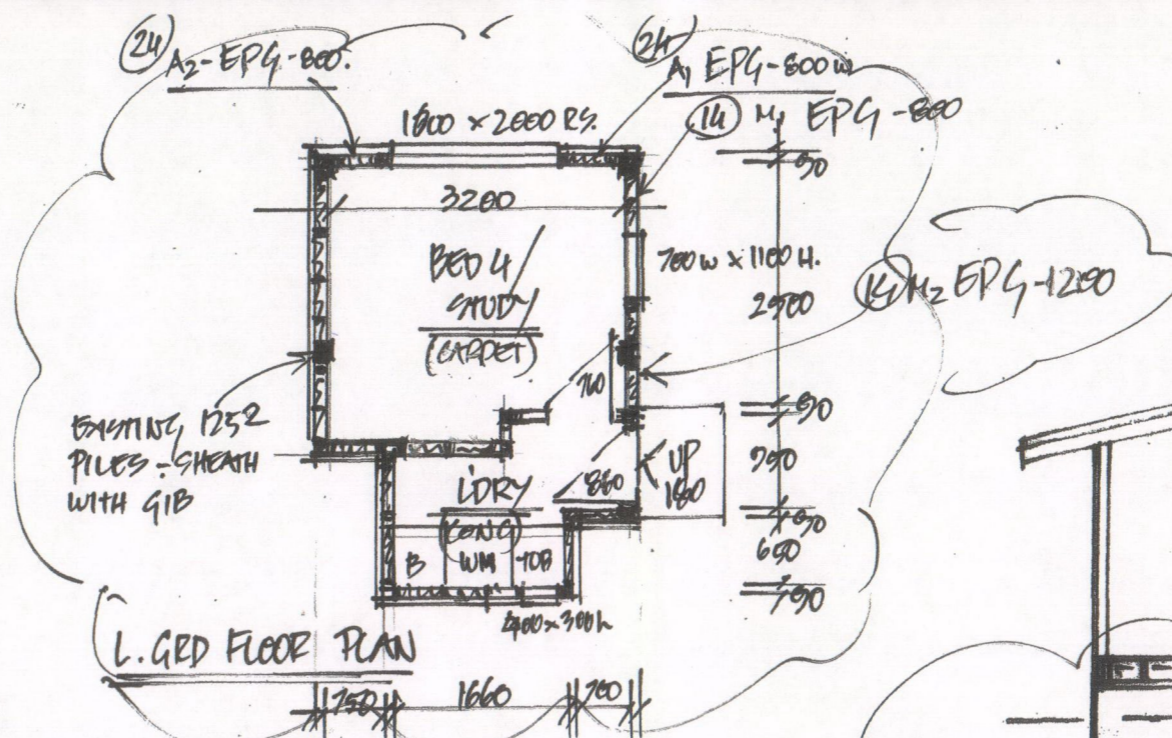 24
A2-EPG-800.
24
A1 EPG-800W
14 M1 EPG-800
1800 x 2000 RS.
90
3200
BED 4/
STUDY
(CARPET)
700W x 1100 H.
2900
14 M2 EPG-1200
760
EXISTING 125²
PILES - SHEATH
WITH GIB
90
UP
180
950
860
L'DRY
(CONC)
B
WM
TUB
90
600
90
L. GRD FLOOR PLAN
750
1660
700